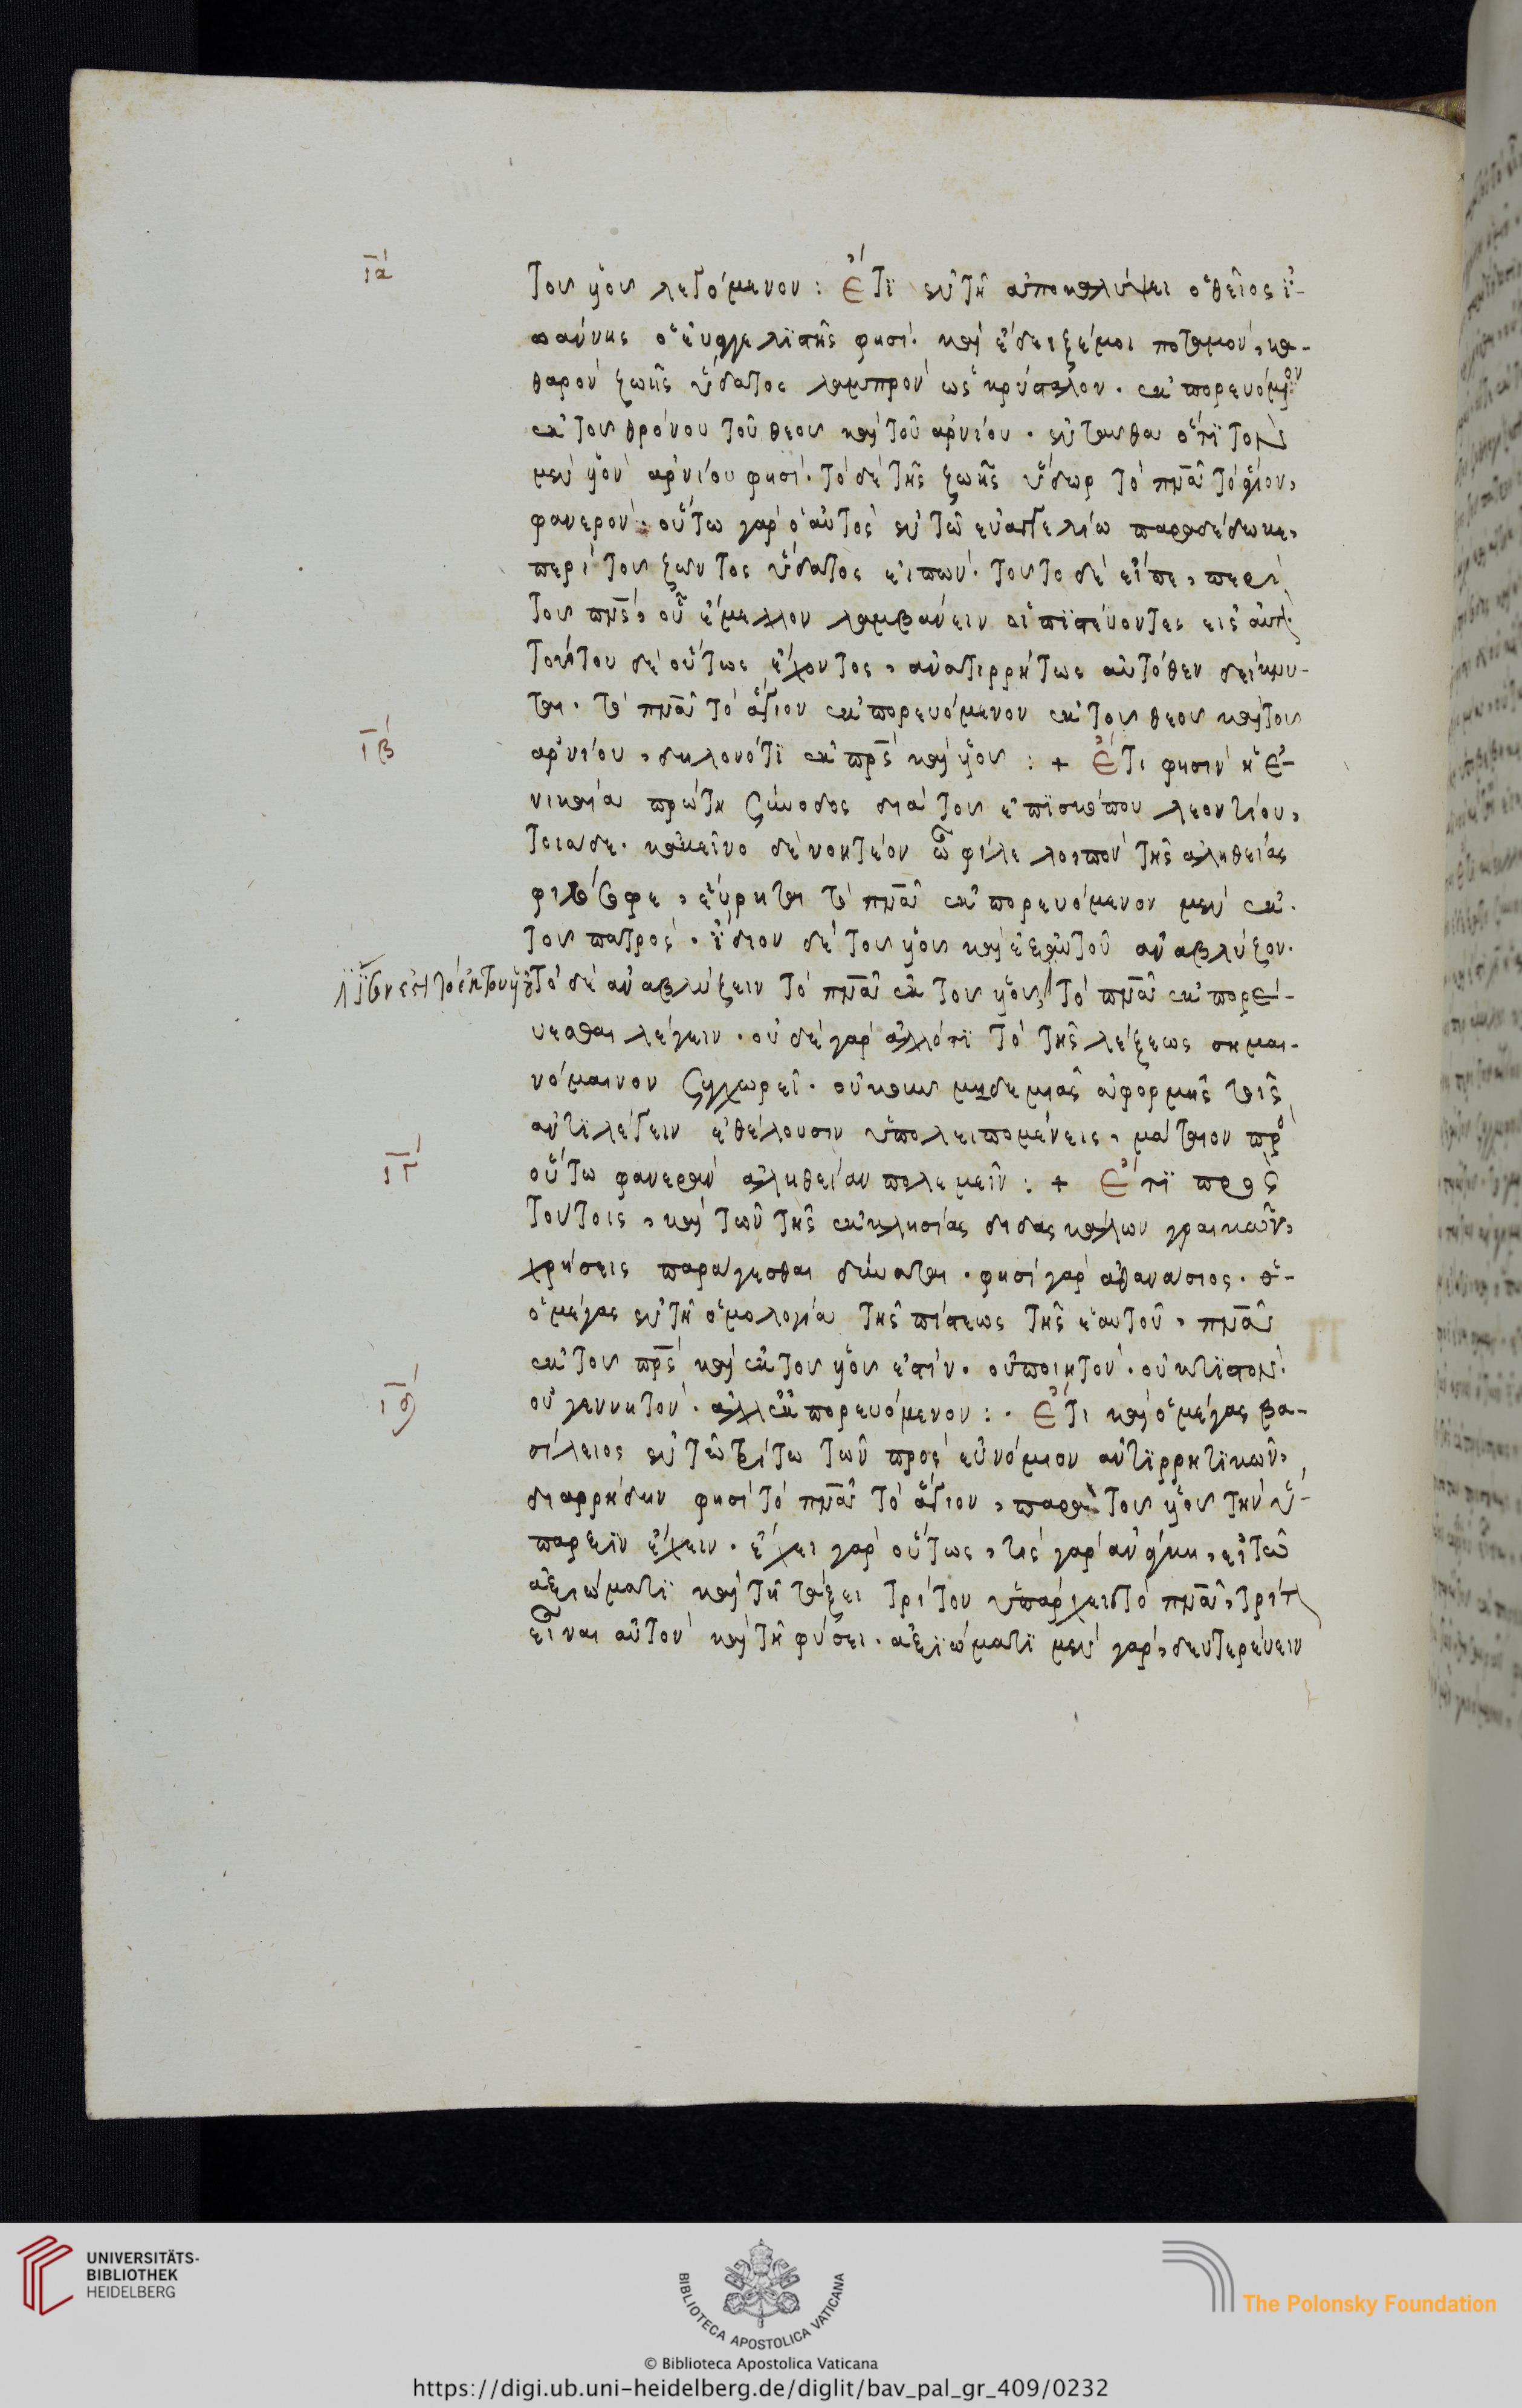 ια
τοῦ υἱοῦ λεγόμενον: Ἔτι ἐν τῇ ἀποκαλύψει ὁ θεῖος ἰ-
ωάννης ὁ εὐαγγελιστής φησί. καὶ ἔδειξέ μοι ποταμὸν, κα-
θαρὸν ζωῆς ὕδατος λαμπρὸν ὡς κρύσταλον. ἐκπορευόμενον
ἐκ τοῦ θρόνου τοῦ θεοῦ καὶ τοῦ ἀρνίου. ἐνταῦθα ὅτι τὸν
μὲν υἱὸν ἀρνίου φησί. τὸ δὲ τῆς ζωῆς ὕδωρ τὸ πνᾶ τὸ ἅγιον,
φανερόν. οὕτω γὰρ ὁ αὐτὸς ἐν τῷ εὐαγγελίω παραδέδωκε,
περὶ τοῦ ζῶντος ὕδατος εἰπών. τοῦτο δὲ εἶπε, περὶ
τοῦ πνς, οὗ ἔμελλον λαμβάνειν οἱ πιστεύοντες εἰς αὐτόν.
τούτου δὲ οὕτως ἔχοντος, ἀναντιρρήτως αὐτόθεν δείκνυ-
ται. τὸ πνᾶ τὸ ἅγιον ἐκπορευόμενον ἐκ τοῦ θεοῦ καὶ τοῦ
ιβ
ἀρνίου, δηλονότι ἐκ πρς καὶ υἱοῦ: + Ἔτι φησὶν ἡ ἐν
νικαία πρώτη σύνοδος διὰ τοῦ ἐπισκόπου λεοντίου,
τοιάδε. κἀκεῖνο δὲ νοητέον ὦ φίλε λοιπὸν τῆς ἀληθείας
φιλόσοφε, εὕρηται τὸ πνᾶ ἐκπορευόμενον μὲν ἐκ
τοῦ πατρός. ἴδιον δὲ τοῦ υἱοῦ καὶ ἐξ αὐτοῦ ἀναβλύζον.
τὸ δὲ ἀναβλύζειν τὸ πνᾶ ἐκ τοῦ υἱοῦ, τὸ πνᾶ ἐκπορε-
ύεσθαι λέγειν. οὐδὲ γὰρ ἄλλό τι τὸ τῆς λέξεως σημαι-
νόμαινον συγχωρεῖ. οὐκοῦν μηδεμιᾶς ἀφορμῆς τοῖς
ἀντιλέγειν ἐθέλουσιν ὑπολειπομένεις, μάταιον πρὸς
ιγ
οὕτω φανερὰν ἀλήθειαν πολεμεῖν: + Ἔτι πρὸς
τούτοις, καὶ τῶν τῆς ἐκκλησίας διδασκάλων γραικῶν,
χρήσεις παράγεσθαι δύναται. φησὶ γὰρ ἀθανάσιος. ὁ-
ὁ μέγας ἐν τῇ ὁμολογία τῆς πίστεως τῆς ἑαυτοῦ, πνᾶ
ἐκ τοῦ πρς καὶ ἐκ τοῦ υἱοῦ ἐστίν. οὐ ποιητόν. οὐ κτιστόν.
ιδ
οὐ γεννητόν. ἀλλ' ἐκπορευόμενον:. Ἔτι καὶ ὁ μέγας βα-
σίλειος ἐν τῷ τρίτω τῶν πρὸς εὐνόμιον ἀντιρρητικῶν,
διαρρήδην φησὶ τὸ πνᾶ τὸ ἅγιον, παρὰ τοῦ υἱοῦ τὴν ὕ-
παρξιν ἔχειν. ἔχει γὰρ οὕτως, τίς γὰρ ἀνάγκη, εἰ τῷ
ἀξιώματι καὶ τῇ τάξει τρίτον ὑπάρχει τὸ πνᾶ, τρίτον
εἶναι αὐτὸν καὶ τῇ φύσει. ἀξιώματι μὲν γὰρ, δευτερεύειν
UNIVERSITÄTS-
BIBLIOTHEK
HEIDELBERG
BIBLIOTECA APOSTOLICA VATICANA
The Polonsky Foundation
© Biblioteca Apostolica Vaticana
https://digi.ub.uni-heidelberg.de/diglit/bav_pal_gr_409/0232